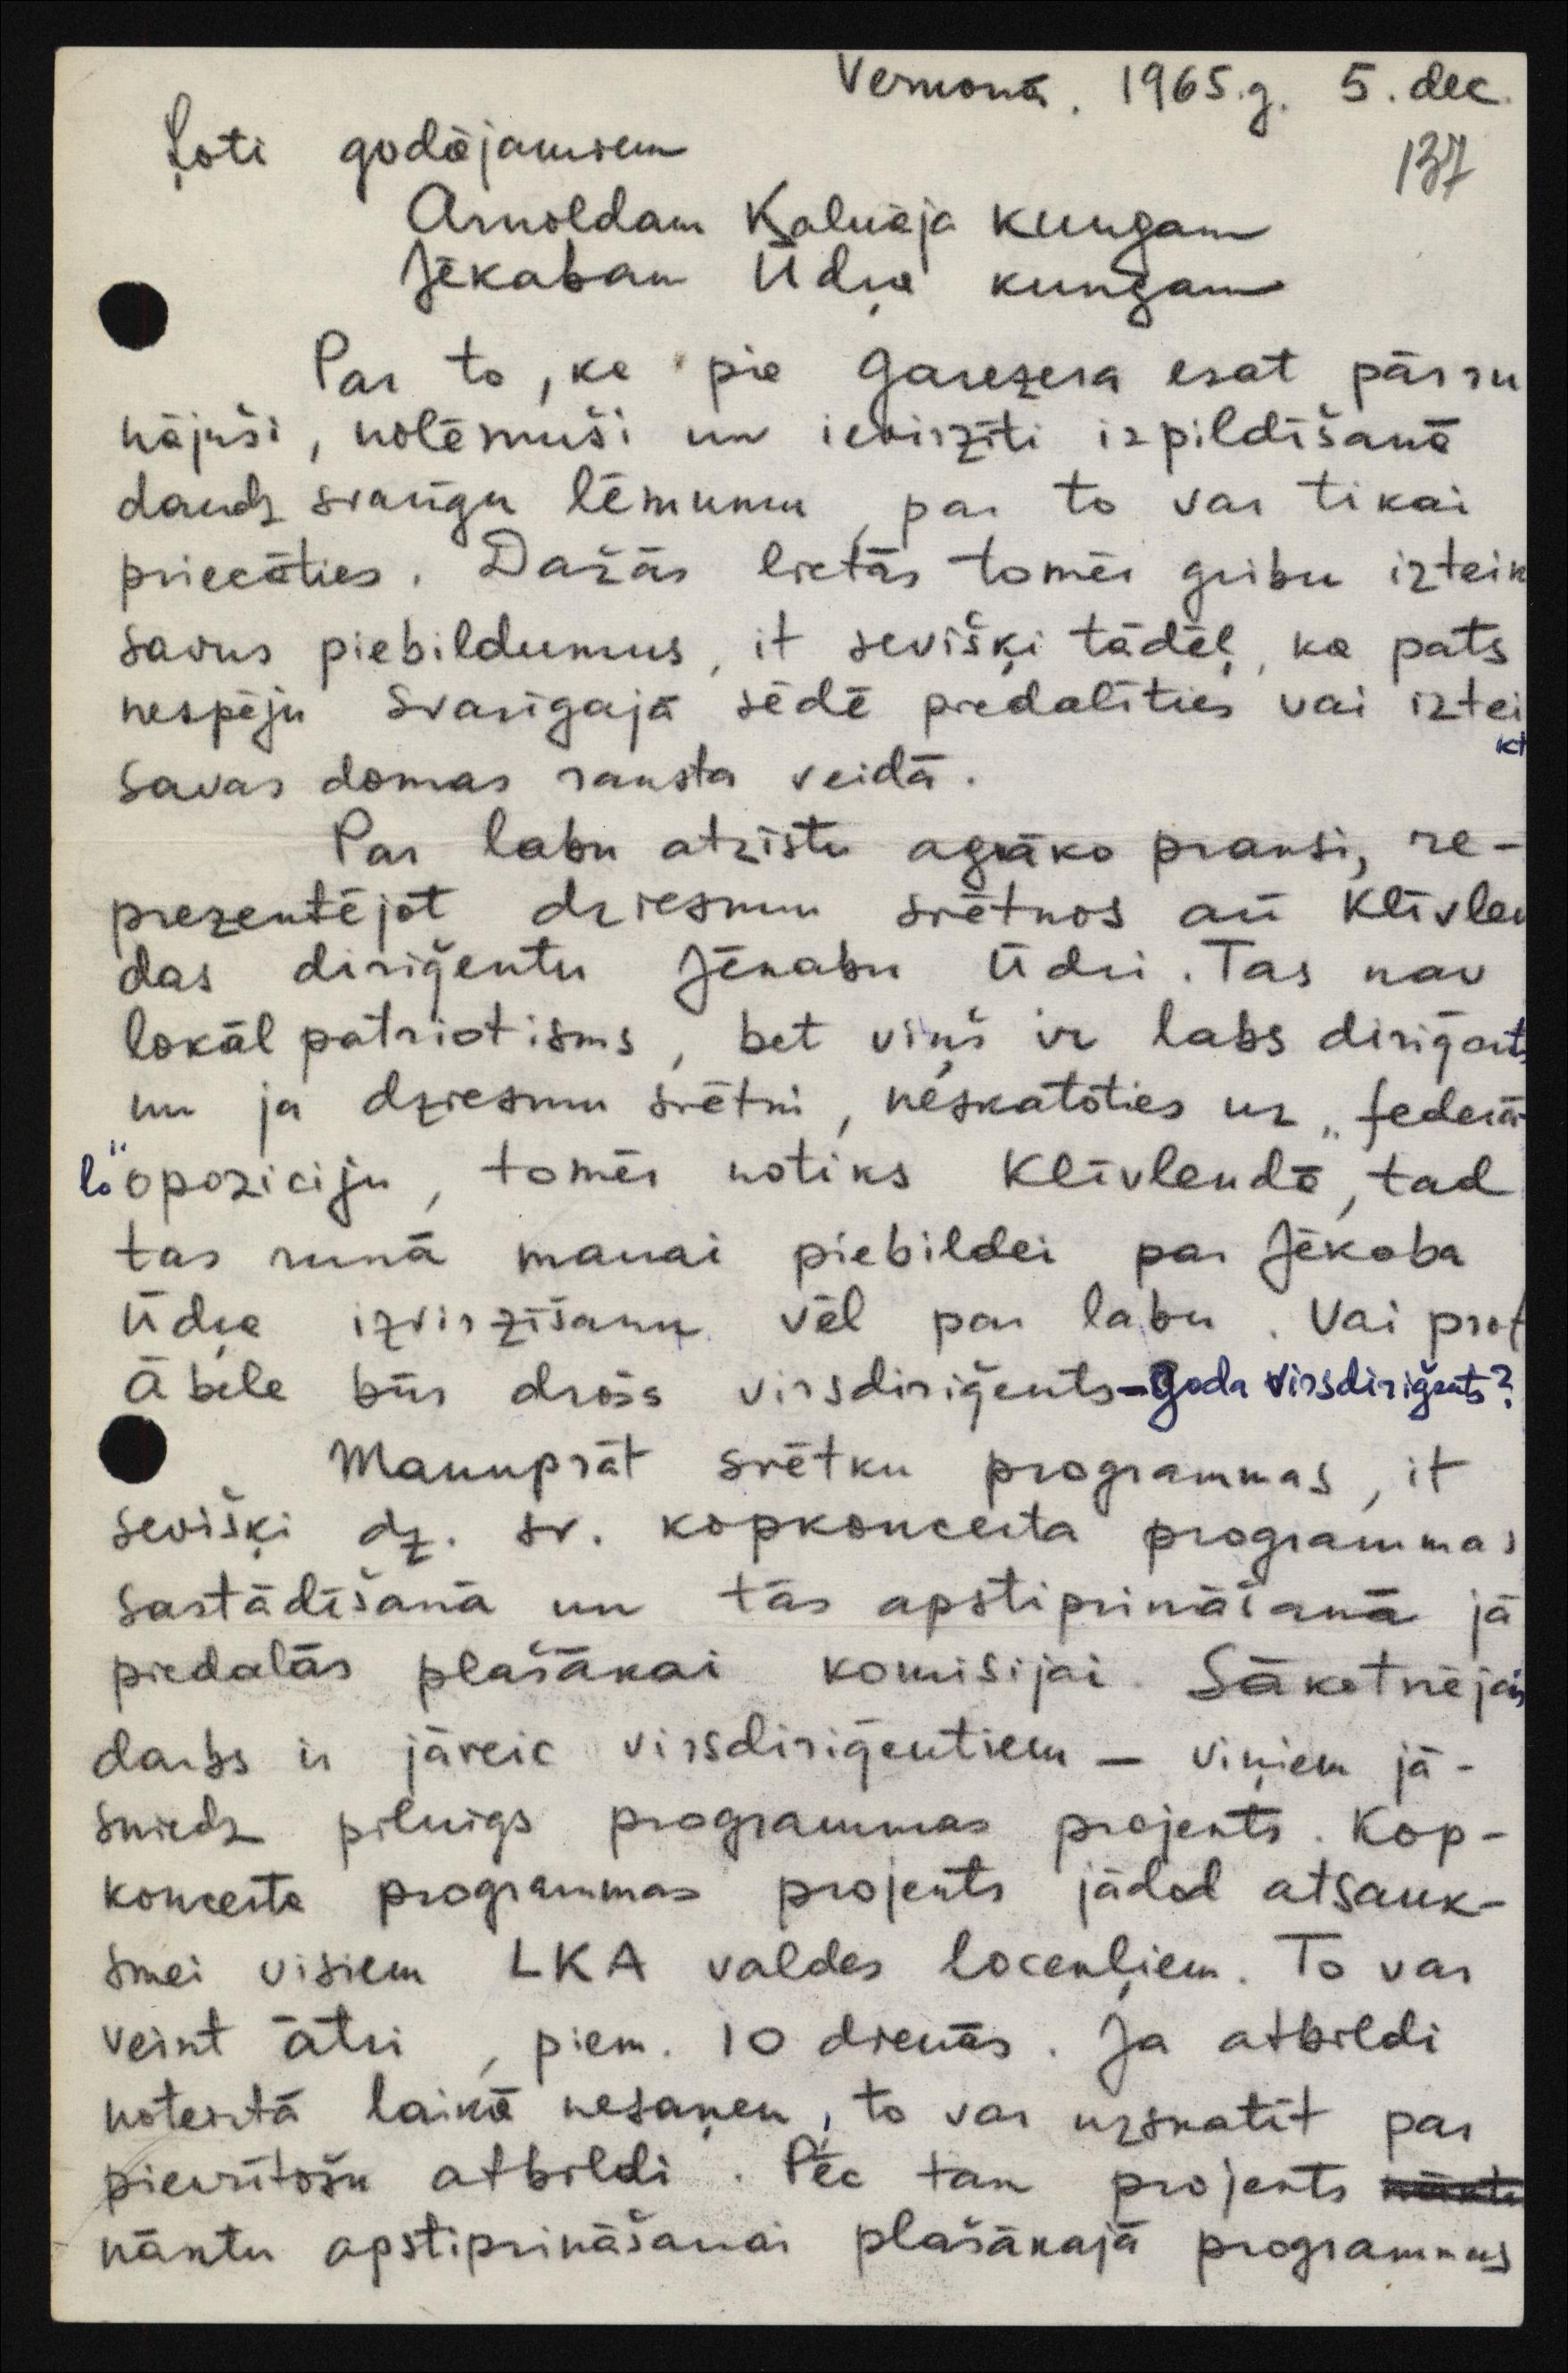 Vermonā. 1965.g. 5. dec.
137
Ļoti godājamiem
Arnoldam Kalnāja kungam
Jēkabam Ūdra kungam
Par to, ka pie Garezera esat pārru
nājuši, nolēmuši un ievirzīti izpildīšanā
daudz svarīgu lēmumu, par to var tikai
priecāties. Dažās lietās tomēr gribu izteik
savus piebildumus, it sevišķi tādēļ, ka pats
nespēju svarīgajā sēdē piedalīties vai iztei
kt
savas domas raksta veidā.
Par labu atzīstu agrāko praksi, re-
prezentējot dziesmu svētkos arī Klīvlen
das diriģentu Jēkabu Ūdri. Tas nav
lokālpatriotisms, bet viņš ir labs diriģents
un ja dziesmu svētki, neskatoties uz „federā-
lo" opoziciju, tomēr notiks Klīvlendā, tad
tas runā manai piebildei par Jēkaba
Ūdra izvirzīšanu vēl par labu. Vai prof
Ābele būs drošs virsdiriģents - Goda virsdiriģents?
Manuprāt svētku programmas, it
sevišķi dz. sv. kopkoncerta programmas
sastādīšanā un tās apstiprināšanā jā
piedalās plašākai komisijai. Sākotnējais
darbs ir jāveic virsdiriģentiem – viņiem jā-
sniedz pilnīgs programmas projekts. Kop-
koncerta programmas projekts jādod atsauk-
smei visiem LKA valdes locekļiem. To var
veikt ātri, piem. 10 dienās. Ja atbildi
noteiktā laikā nesaņem, to var uzskatīt par
piekrītošu atbildi. Pēc tam projekts
nāktu apstiprināšanai plašākajā programmas